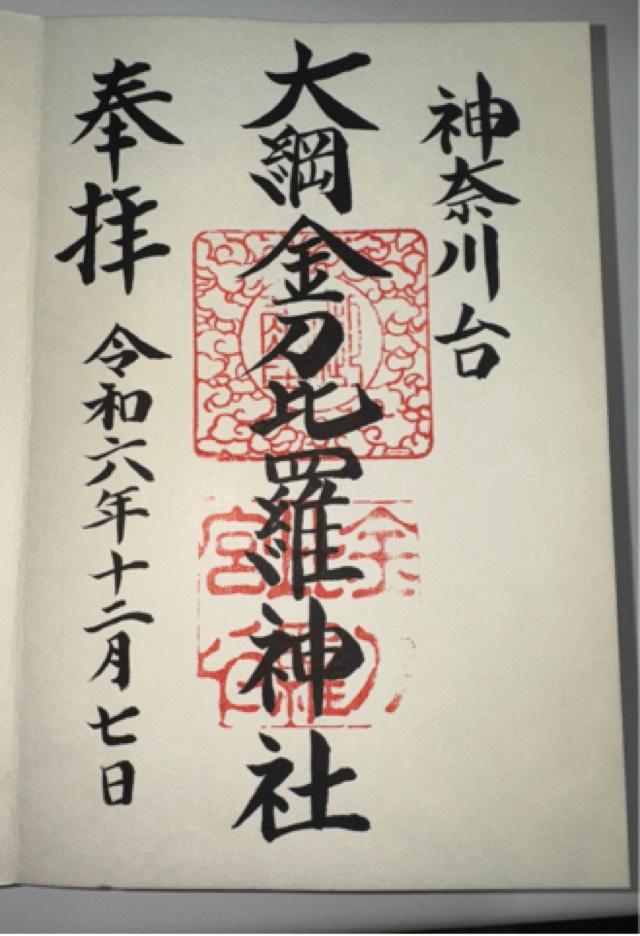 神奈川台
大綱金刀比羅神社
奉拝
令和六年十二月七日